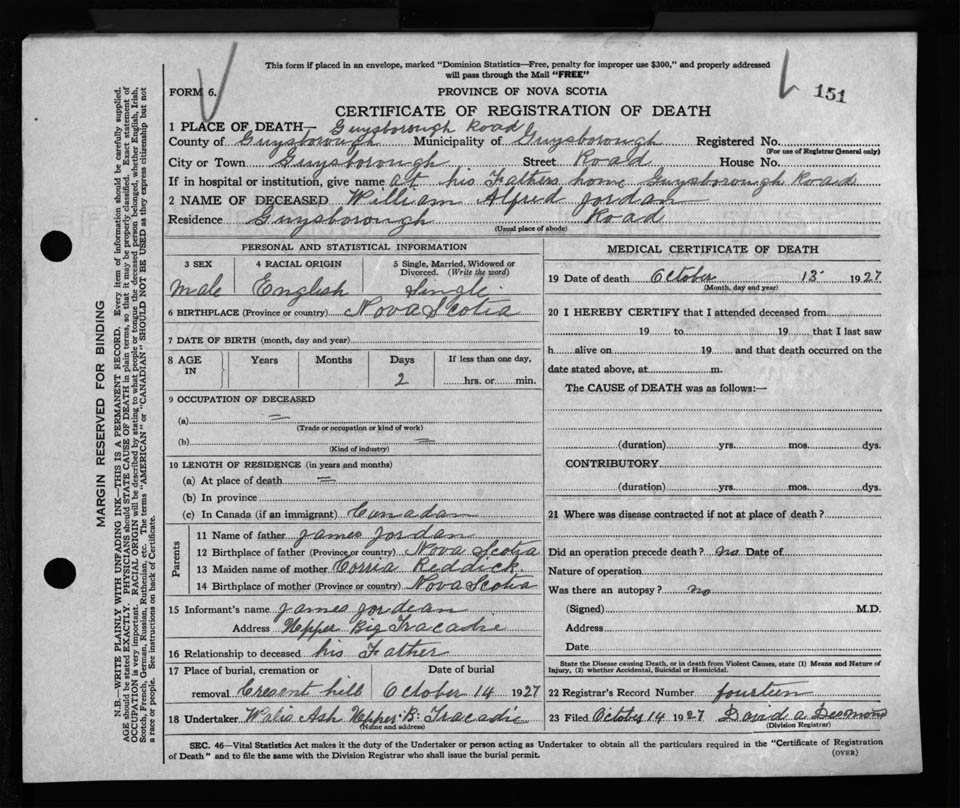 This form if placed in an envelope, marked "Dominion Statistics—Free, penalty for improper use $300," and properly addressed
will pass through the Mail "FREE"
FORM 6.
PROVINCE OF NOVA SCOTIA
151
CERTIFICATE OF REGISTRATION OF DEATH
1 PLACE OF DEATH— Guysborough Road
County of Guysborough Municipality of Guysborough Registered No.
(For use of Registrar General only)
City or Town Guysborough Street Road House No.
If in hospital or institution, give name at his Fathers home Guysborough Road
2 NAME OF DECEASED William Alfred Jordan
Residence Guysborough Road
(Usual place of abode)
PERSONAL AND STATISTICAL INFORMATION
3 SEX 4 RACIAL ORIGIN 5 Single, Married, Widowed or
Divorced. (Write the word)
Male English Single
6 BIRTHPLACE (Province or country) Nova Scotia
7 DATE OF BIRTH (month, day and year)
8 AGE IN Years Months Days If less than one day,
2 hrs. or min.
9 OCCUPATION OF DECEASED
(a) =
(Trade or occupation or kind of work)
(b) =
(Kind of industry)
10 LENGTH OF RESIDENCE (in years and months)
(a) At place of death =
(b) In province
(c) In Canada (if an immigrant) Canadan
Parents
11 Name of father James Jordan
12 Birthplace of father (Province or country) Nova Scotia
13 Maiden name of mother Corria Reddick
14 Birthplace of mother (Province or country) Nova Scotia
15 Informant's name James Jordean
Address Upper Big Tracadie
16 Relationship to deceased his Father
17 Place of burial, cremation or Date of burial
removal Cresent hill October 14 1927
18 Undertaker Ash Upper B. Tracadie
(Name and address)
MEDICAL CERTIFICATE OF DEATH
19 Date of death October 13 1927
(Month, day and year)
20 I HEREBY CERTIFY that I attended deceased from
19 to 19 that I last saw
h alive on 19 and that death occurred on the
date stated above, at m.
The CAUSE of DEATH was as follows:—
(duration) yrs. mos. dys.
CONTRIBUTORY
(duration) yrs. mos. dys.
21 Where was disease contracted if not at place of death?
Did an operation precede death? no Date of
Nature of operation
Was there an autopsy? no
(Signed) M.D.
Address
Date
State the Disease causing Death, or in death from Violent Causes, state (1) Means and Nature of
Injury, (2) whether Accidental, Suicidal or Homicidal.
22 Registrar's Record Number fourteen
23 Filed October 14 1927 David A Desmond
(Division Registrar)
SEC. 46—Vital Statistics Act makes it the duty of the Undertaker or person acting as Undertaker to obtain all the particulars required in the "Certificate of Registration
of Death" and to file the same with the Division Registrar who shall issue the burial permit.
(OVER)
MARGIN RESERVED FOR BINDING
N.B.—WRITE PLAINLY WITH UNFADING INK—THIS IS A PERMANENT RECORD. Every item of information should be carefully supplied.
AGE should be stated EXACTLY. PHYSICIANS should STATE CAUSE OF DEATH in plain terms, so that it may be properly classified. Exact statement of
OCCUPATION is very important. RACIAL ORIGIN will be described by stating to what people or tongue the deceased person belonged, whether English, Irish,
Scotch, French, German, Russian, Ruthenian, etc. The terms "AMERICAN" or "CANADIAN" SHOULD NOT BE USED as they express citizenship but not
a race or people. See instructions on back of Certificate.